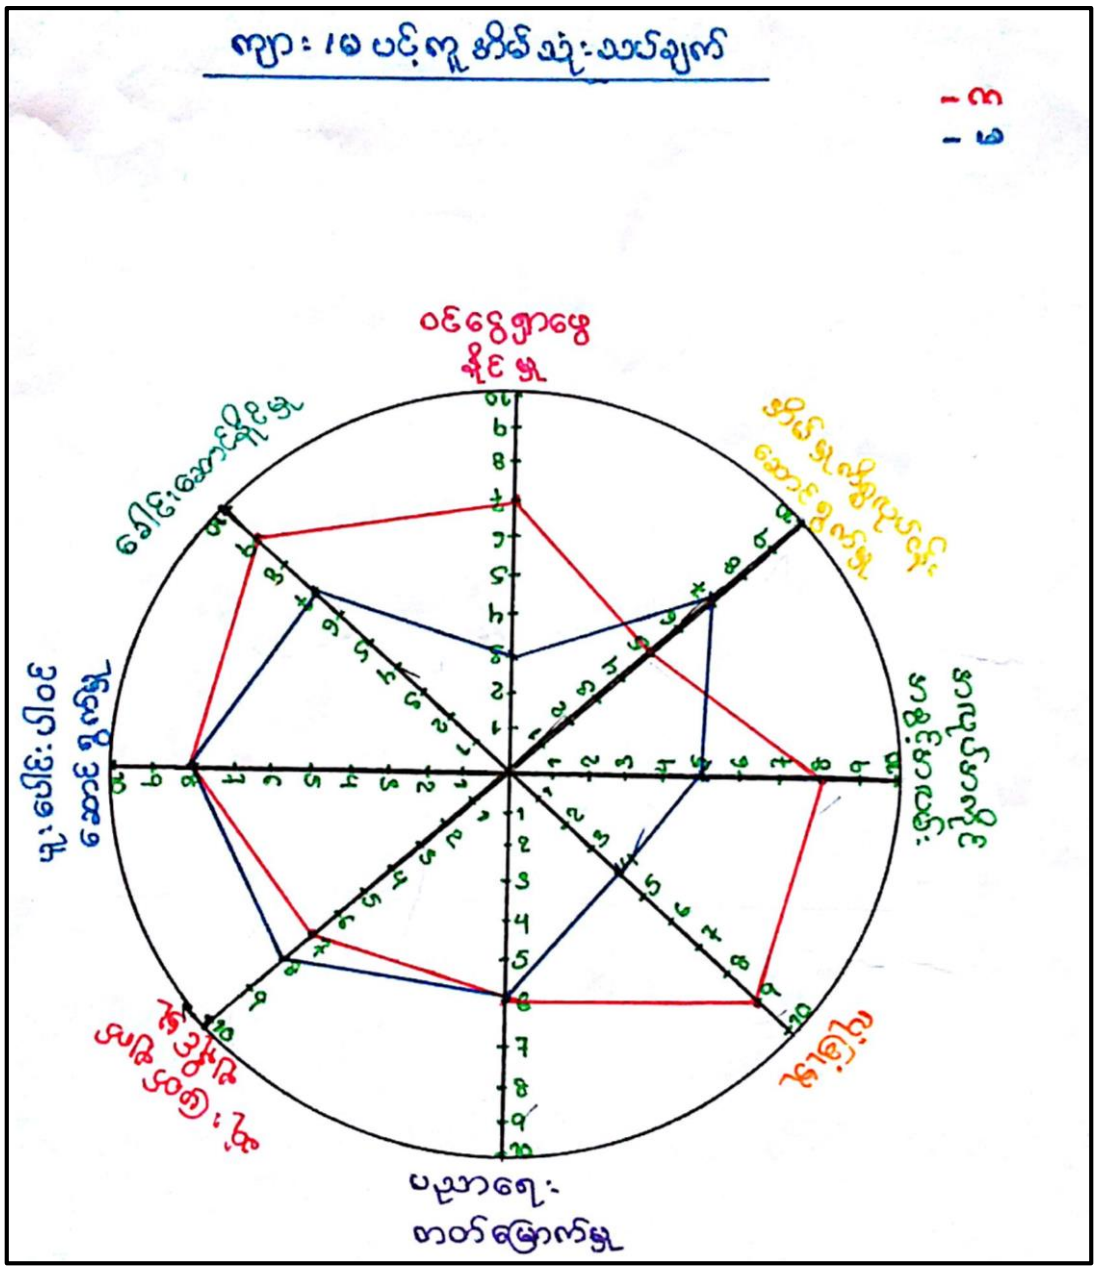 ကျား/မ ပင့်ကူအိမ်သုံးသပ်ချက်
- ကျ
- မ
ဝင်ငွေရှာဖွေ
နိုင်မှု
အိမ်မှုကိစ္စလုပ်ငန်း
ဆောင်ရွက်မှု
အလုပ်အကိုင်
အခွင့်အလမ်း
လုံခြုံမှု
ပညာရေး
တတ်မြောက်မှု
ဆုံးဖြတ်ချက်
ချနိုင်မှု
ပူးပေါင်းပါဝင်
ဆောင်ရွက်နိုင်မှု
ခေါင်းဆောင်နိုင်မှု
1 2 3 4 5 6 7 8 9 10
1 2 3 4 5 6 7 8 9 10
1 2 3 4 5 6 7 8 9 10
1 2 3 4 5 6 7 8 9 10
1 2 3 4 5 6 7 8 9 10
1 2 3 4 5 6 7 8 9 10
1 2 3 4 5 6 7 8 9 10
1 2 3 4 5 6 7 8 9 10